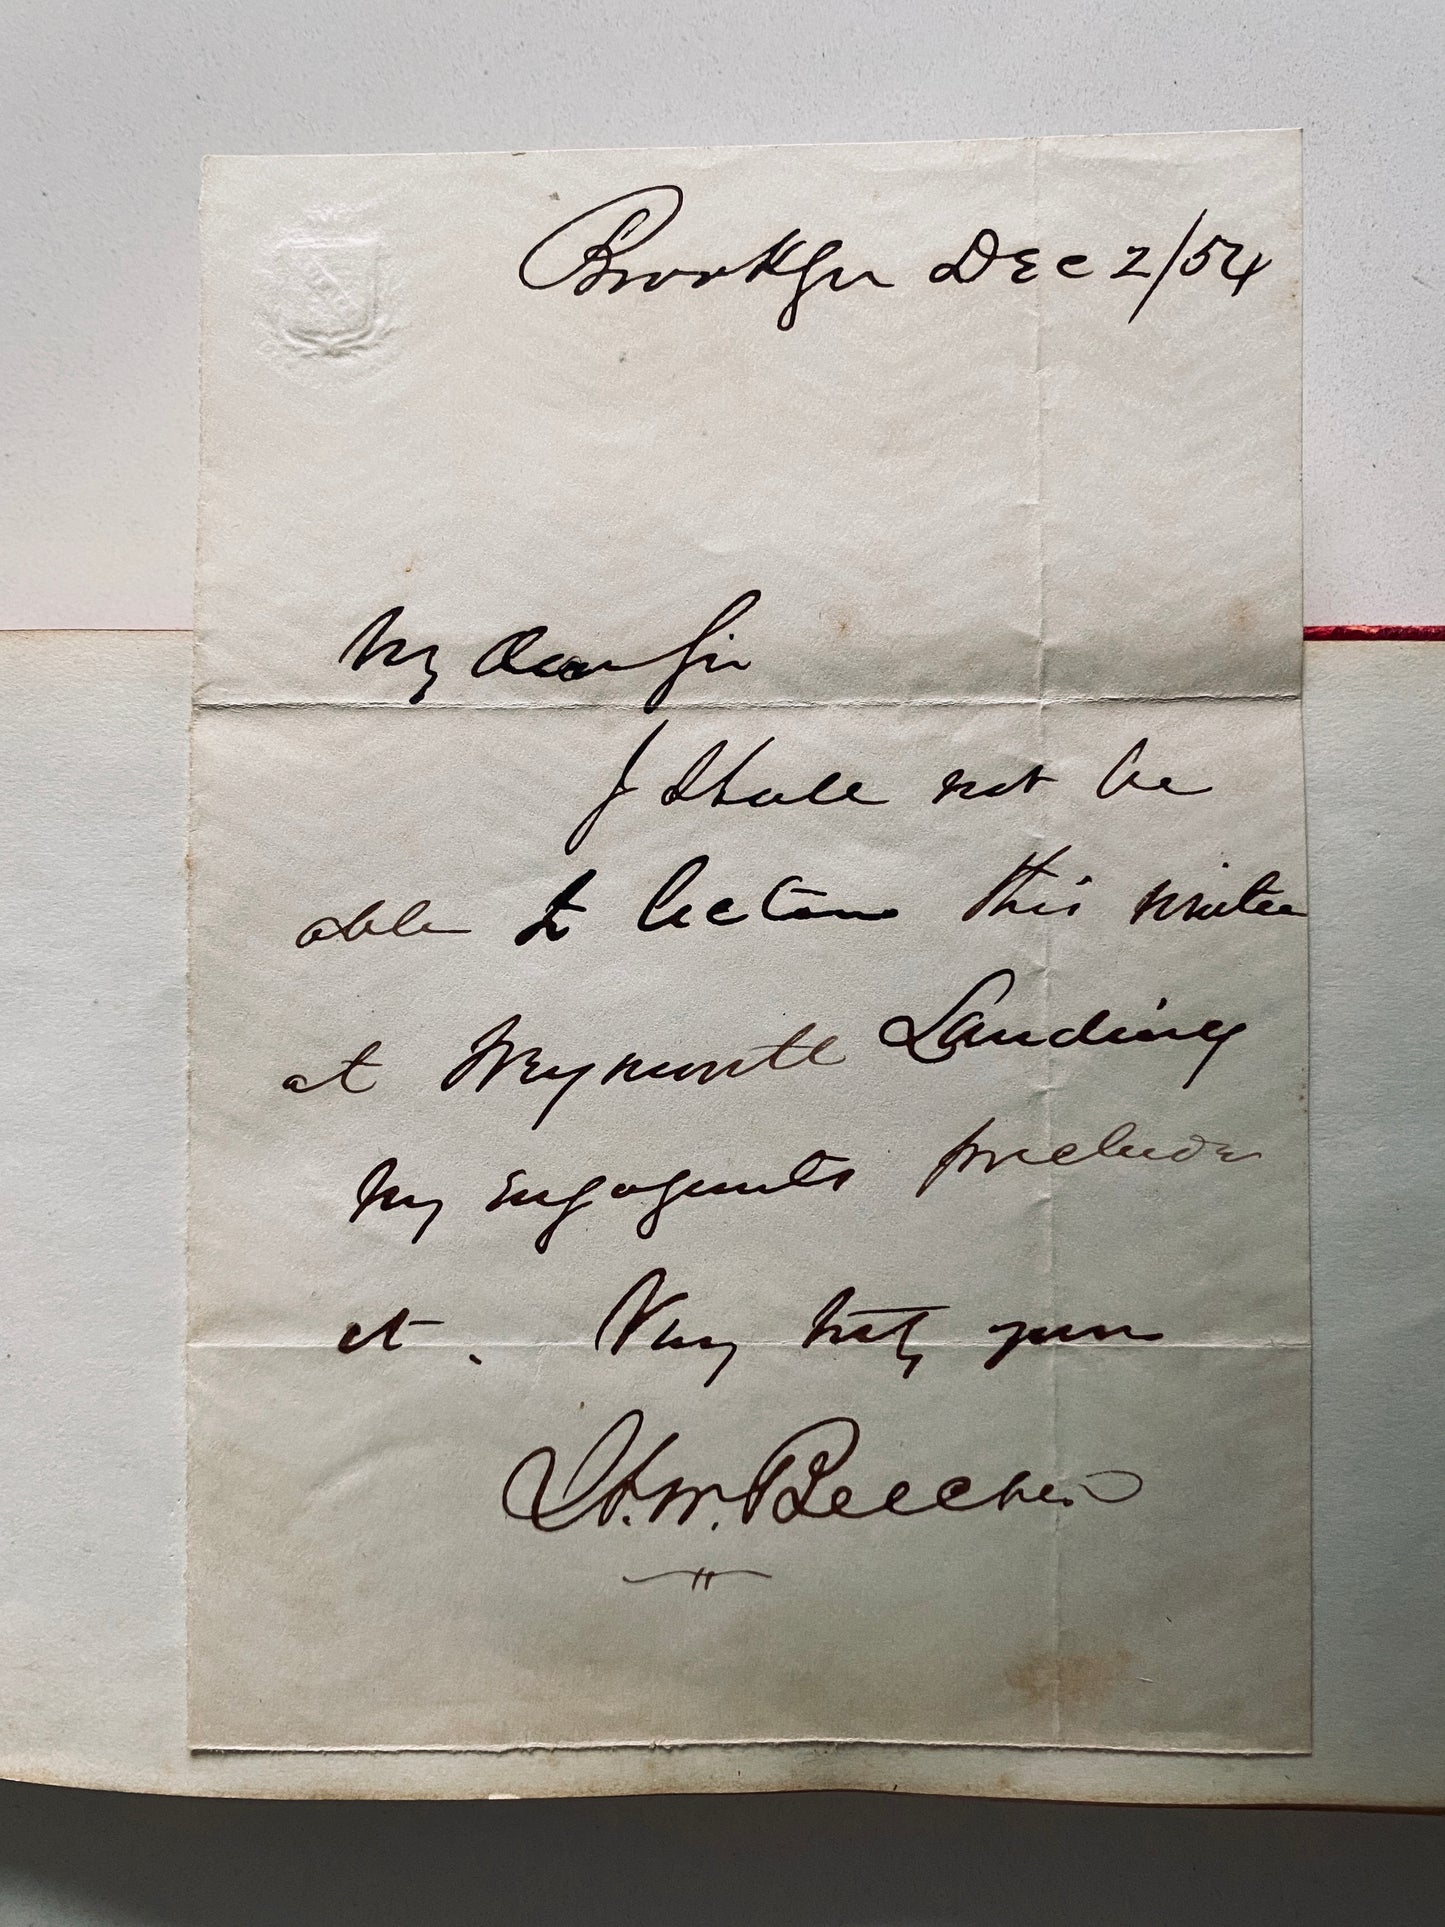 Brooklyn Dec 2/54
My Dear Sir
I shall not be
able to lecture this winter
at Weymouth Landing
My engagements preclude
it. Very truly yours
H. W. Beecher